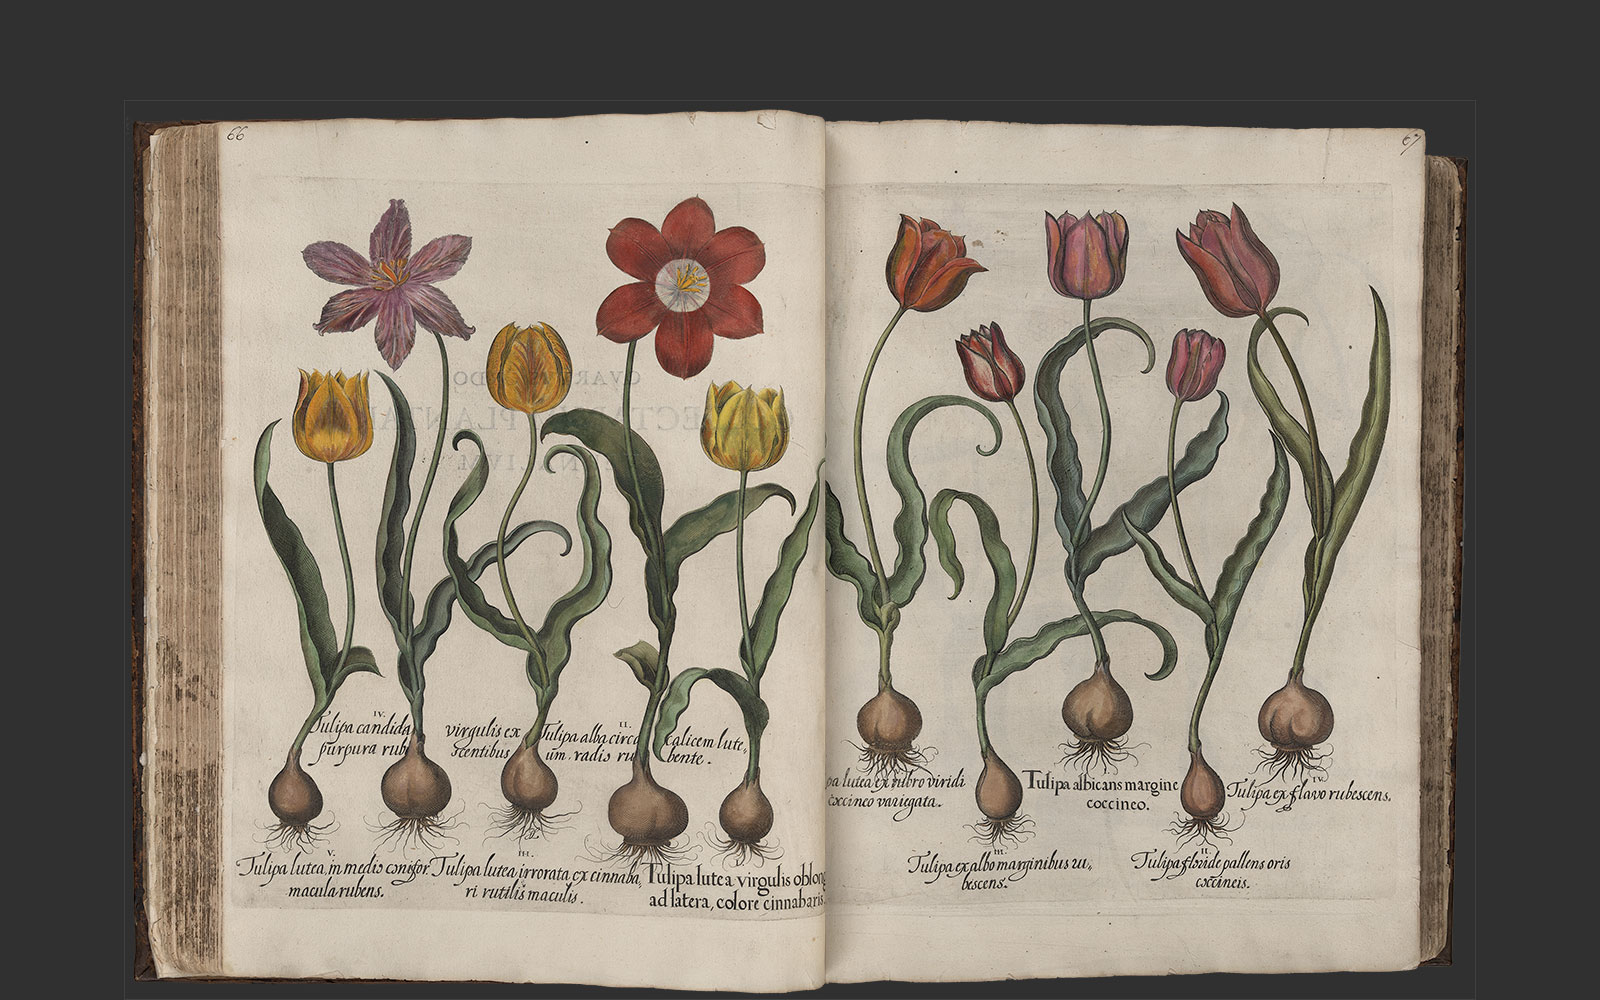 66
67
IV.
Tulipa candida virgulis ex
purpura rube scentibus
II.
Tulipa alba circa calicem lute-
um radis ru bente.
V.
Tulipa lutea, in medio
macula rubens.
III.
Tulipa lutea irrorata ex cinnaba,
ri rutilis maculis.
I.
Tulipa lutea virgulis oblon
ad latera, colore cinnabaris.
pa lutea ex rubro viridi
coccineo variegata.
I.
Tulipa albicans margine
coccineo.
IV.
Tulipa ex flavo rubescens.
III.
Tulipa ex albo marginibus ru-
bescens.
II.
Tulipa floride pallens oris
coccineis.